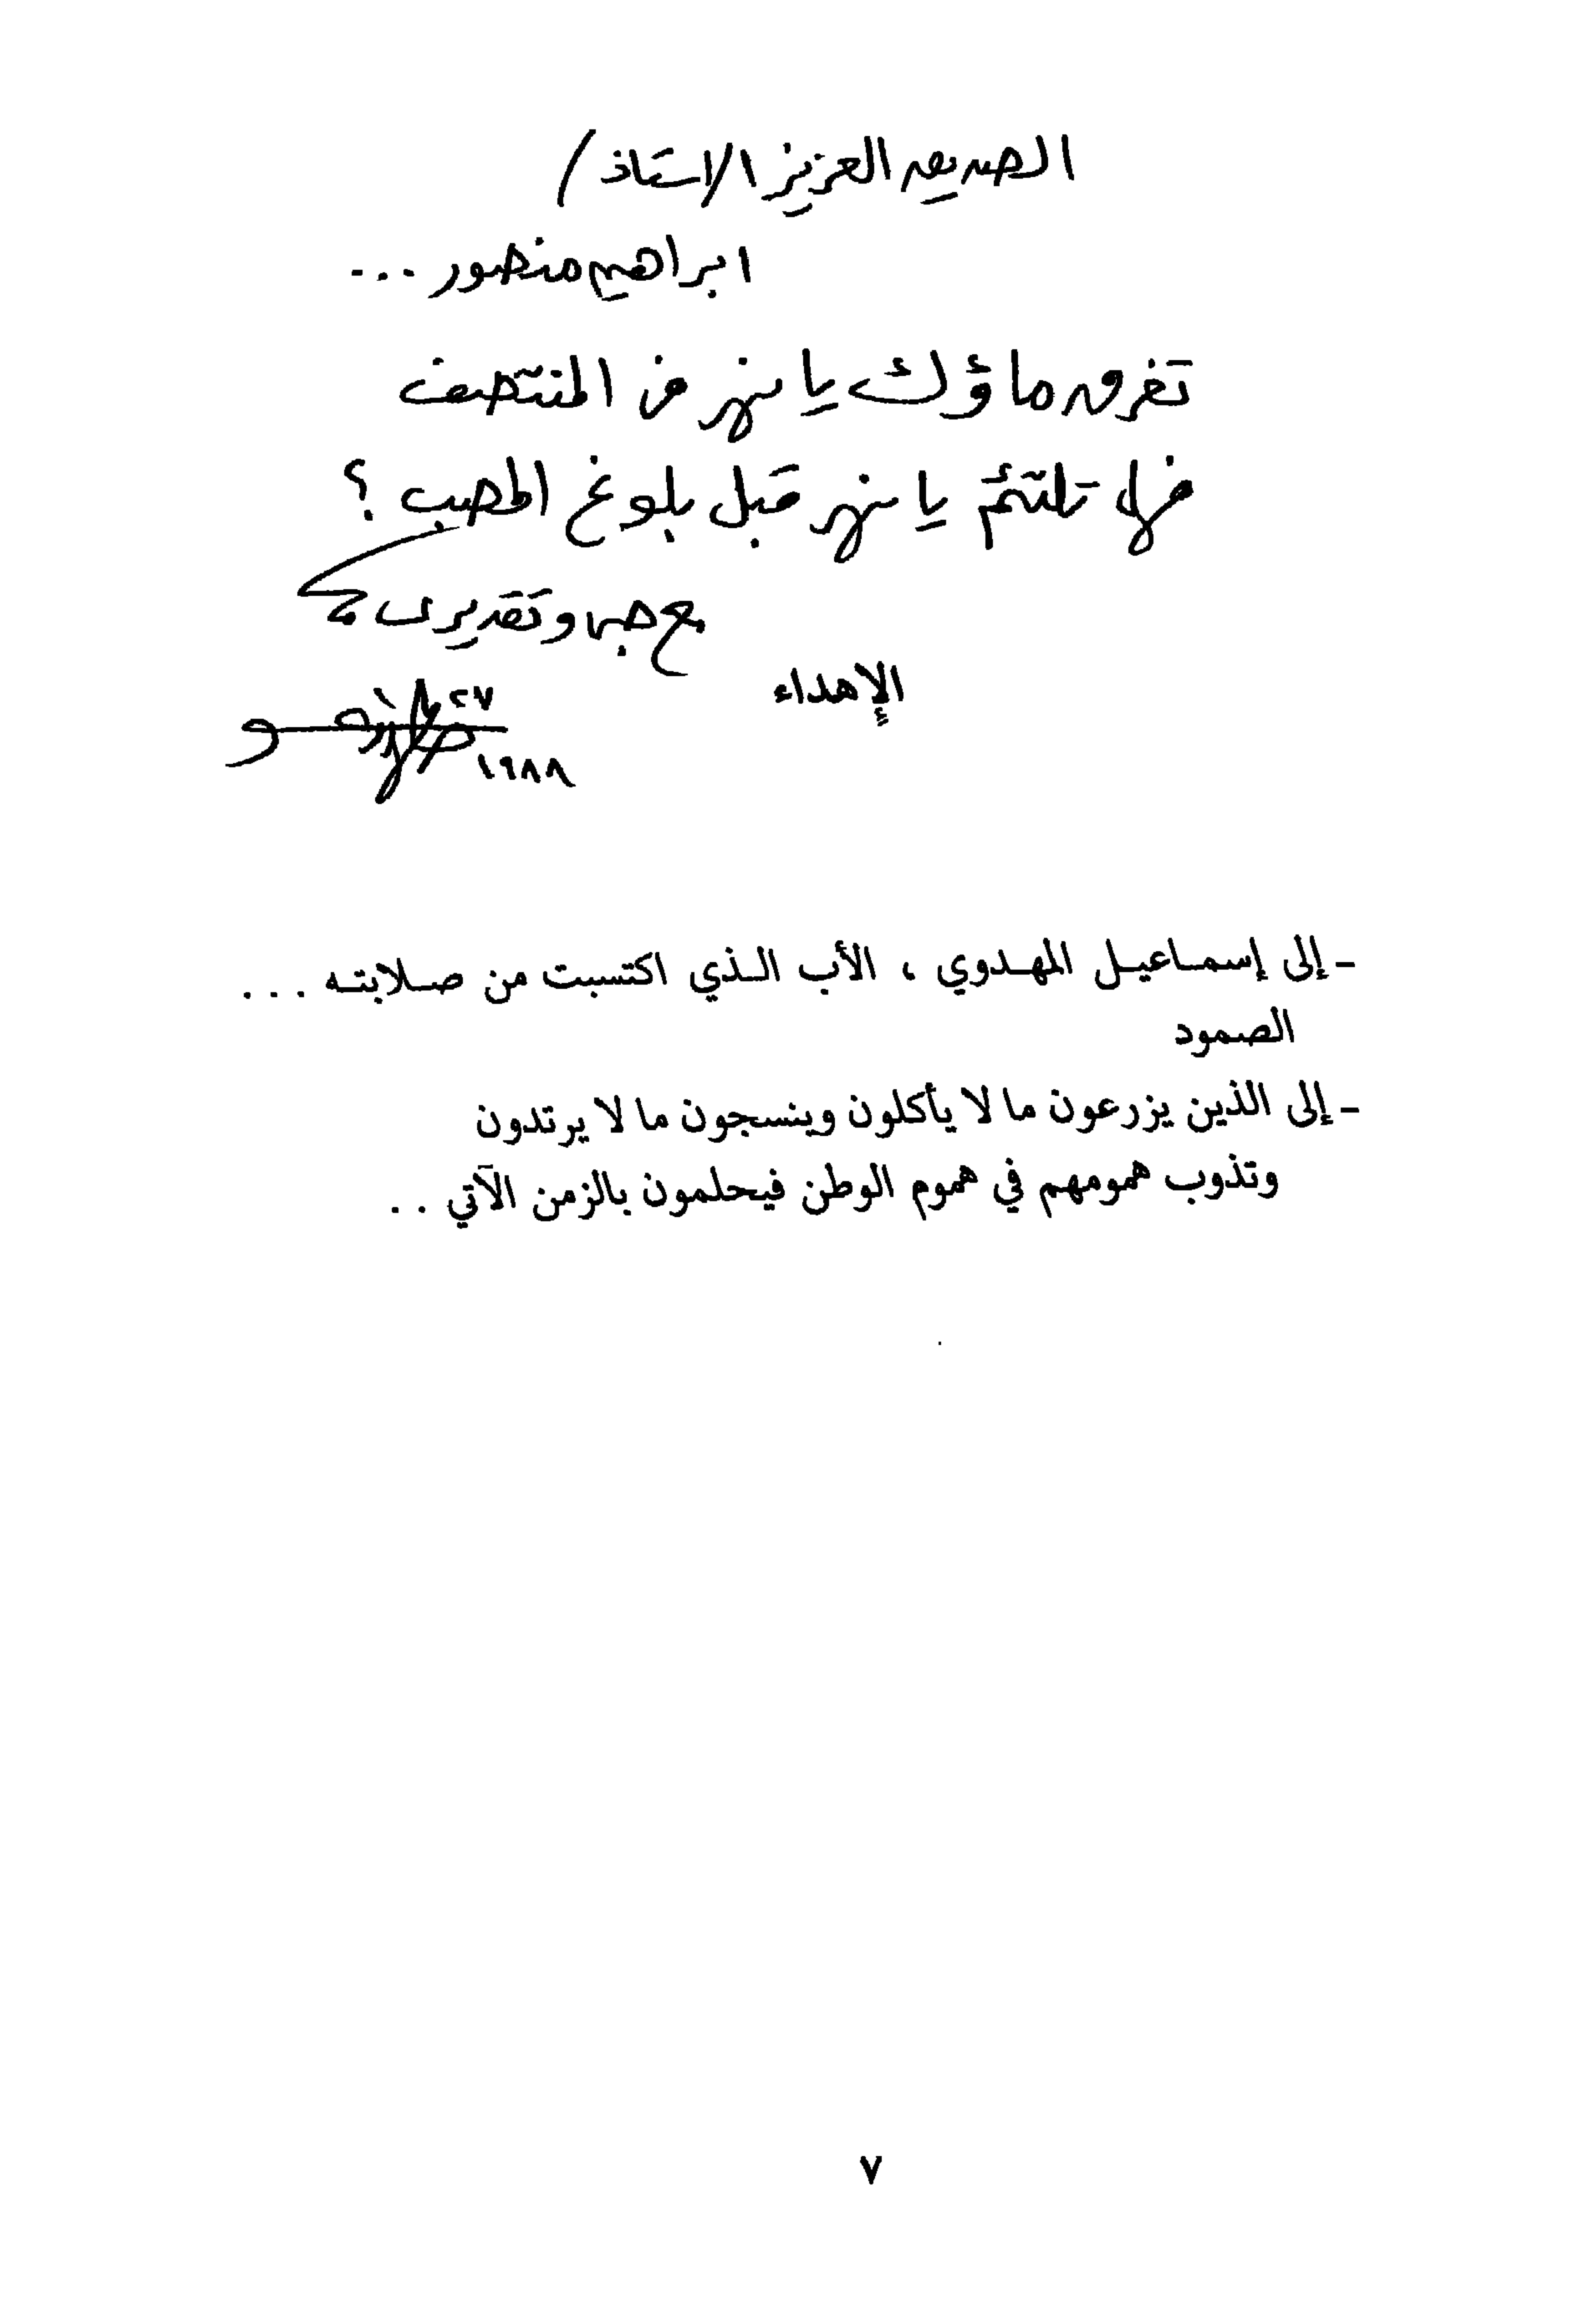 الصديق العزيز الاستاذ /
ابراهيم منصور ...
تفرق ماؤك يا نهر في المنتصف
فهل تلتئم يا نهر قبل بلوغ المصب ؟
مع حبي وتقديرى
الإهداء
٢٧
١٩٨٨
- إلى إسماعيل المهدوي ، الأب الذي اكتسبت من صلابته ...
الصمود
- إلى الذين يزرعون ما لا يأكلون وينسجون ما لا يرتدون
وتذوب همومهم في هموم الوطن فيحلمون بالزمن الآتي ..
٧